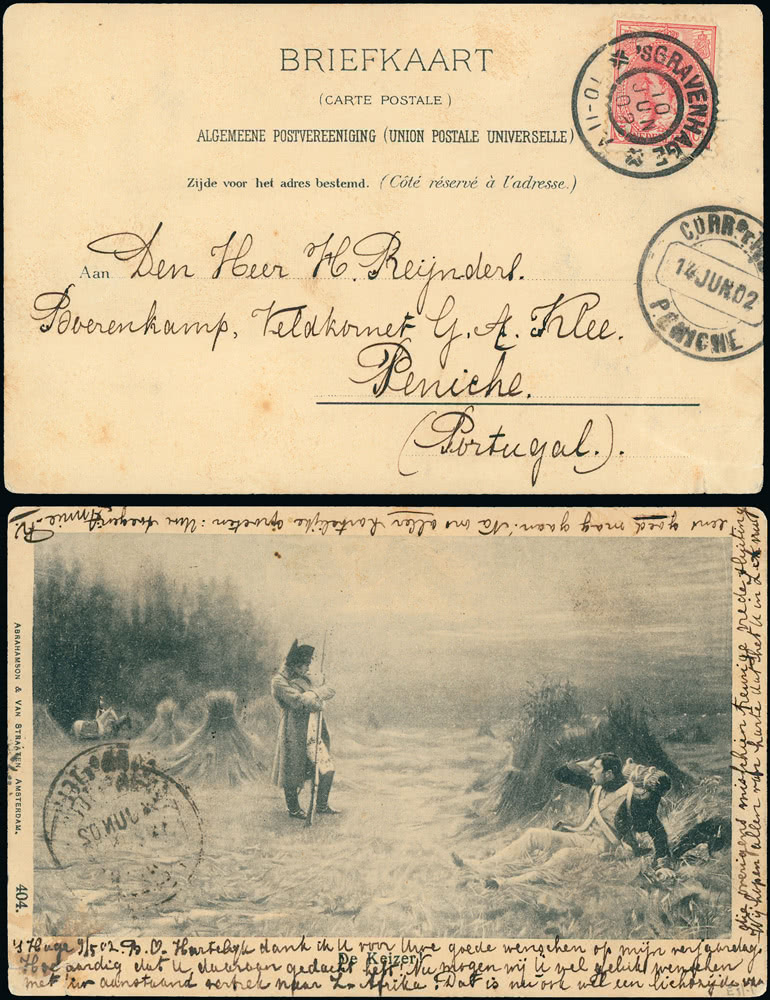 BRIEFKAART
(CARTE POSTALE)
ALGEMEENE POSTVEREENIGING (UNION POSTALE UNIVERSELLE)
Zijde voor het adres bestemd. (Côté réservé à l'adresse.)
'SGRAVENHAGE
10
JUN
02
14 JUN. 02
PENICHE
Aan Den Heer H. Reijnders.
Boerenkamp, Veldkornet G. A. Klee.
Peniche.
(Portugal.).
ABRAHAMSON & VAN STRAATEN, AMSTERDAM.
404.
JUN 02
De Keizer!
's Hage 9/5 02. B. O. Hartelijk dank ik U voor Uwe goede wenschen op mijn verjaardag.
Hoe aardig dat U daaraan gedacht heft. Nu mogen wij U wel geluk wenschen
met uw aanstaand vertrek naar Z. Afrika! Dat is nu ook wel een lichtzijde van
die overigens misschien treurige vredesluiting
Wij hopen allen van harte dat het U in Z. A. nog
eens goed mag gaan. Na ons aller hartelijke groeten: Uw toegen.
Annie R.